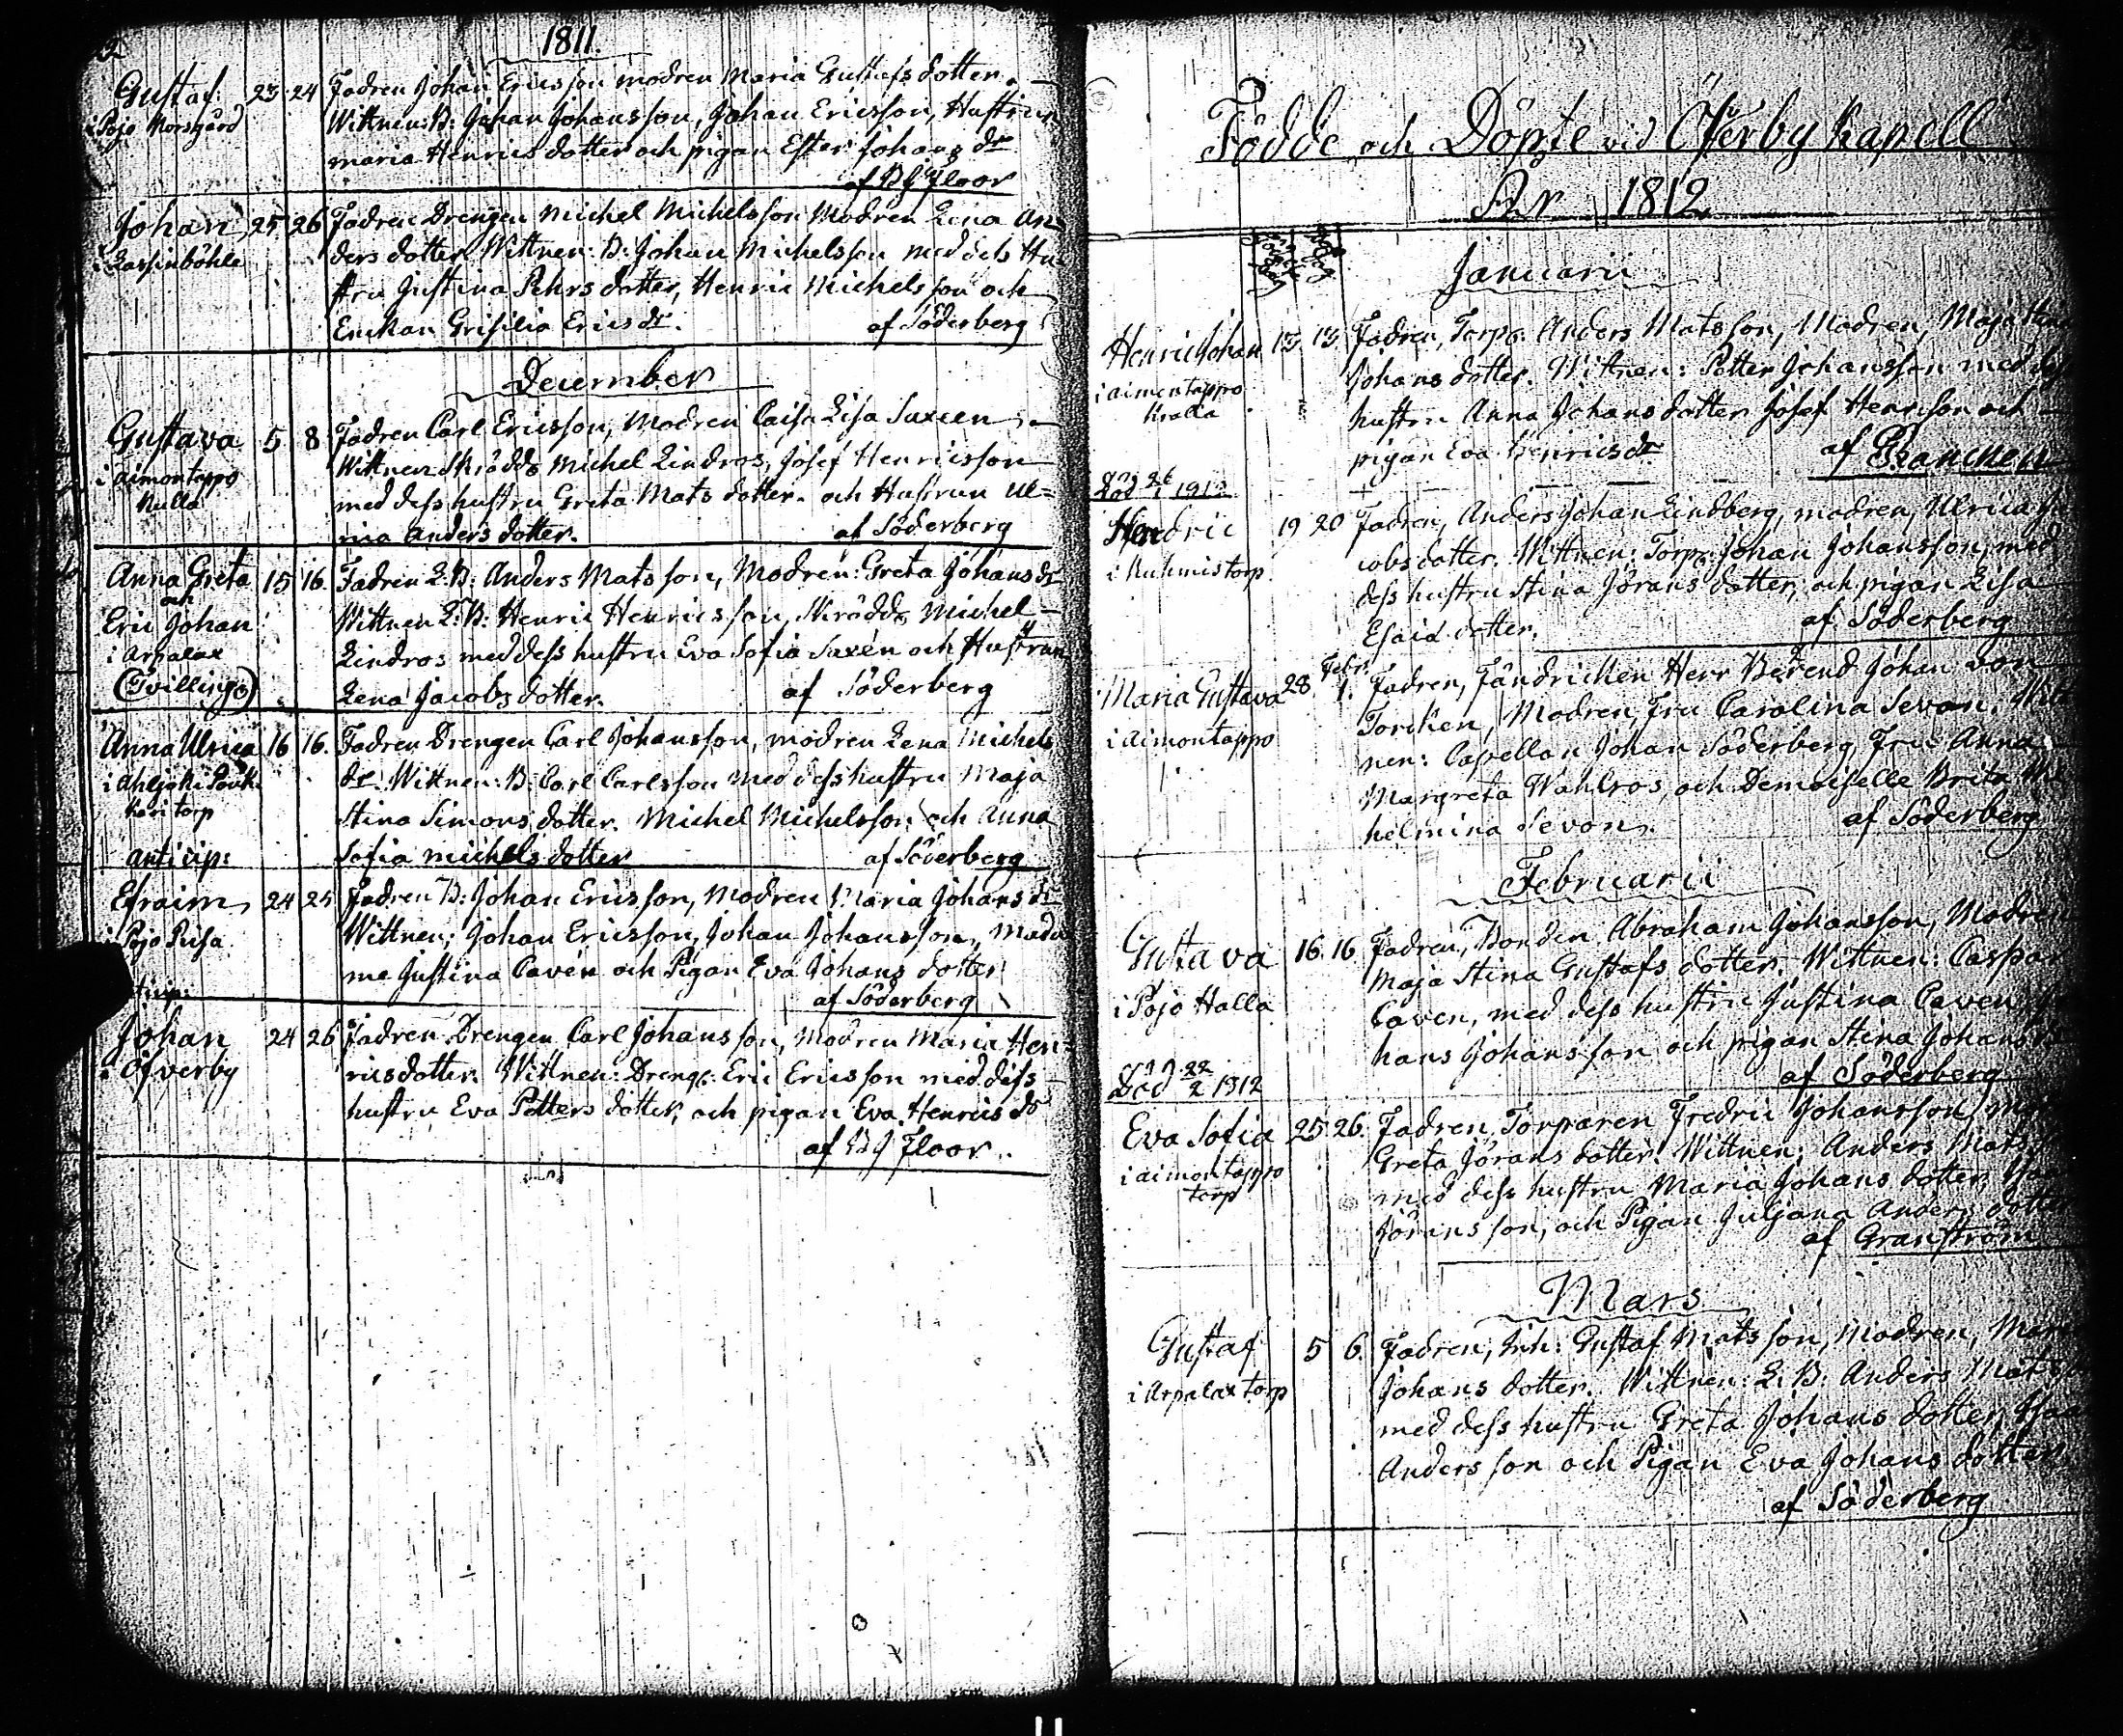 1811.
Gustaf 23 24 Fadren Johan Ericsson modren Maria Gustafs dotter.
i Pojo Norrgård Wittnen: B: Johan Johansson, Johan Ericsson, Hustrun
maria Henrics dotter och pigan Ester Johans dr
af BJ Floor
Johan 25 26 Fadren Drengen Michel Michelsson Modren Lena An
i Lassinböhle ders dotter Wittnen: B: Johan Michelsson med dess Hu
stru Justina Pehrs dotter, Henric Michelsson och
Enckan Grisilia Erics dr. af Söderberg
December
Gustava 5 8 Fadren Carl Ericsson, Modren Caisa Lisa Saxeen
i aimontappo Wittnen Skrädd. Michel Lindros, Josef Henricsson
Kulla med dess hustru Greta Mats dotter. och Hustrun Ul=
rica Anders dotter. af Söderberg
Anna Greta 15 16. Fadren L: B: Anders Matsson, Modren: Greta Johans dr
och
Eric Johan Wittnen L: B: Henric Henricsson, Skrädd. Michel
i Arpalax Lindros med dess hustru Eva Sofia Saxén och Hustrun
(Tvillingr) Lena Jacobs dotter. af Söderberg
Anna Ulrica 16 16. Fadren Drengen Carl Johansson, modren Lena Michels
i Ahljoki dr. Wittnen: B: Carl Carlsson med dess hustru Maja
torp Stina Simons dotter. Michel Michelsson och Anna
anticip: Sofia michels dotter af Söderberg
Efraim 24 25 Fadren B: Johan Ericsson, Modren Maria Johans dr
i Pojo Wittnen; Johan Ericsson, Johan Johansson, Mada
me Justina Cavén och Pigan Eva Johans dotter
af Söderberg
Johan 24 26 Fadren Drengen Carl Johansson, Modren Maria Hen=
i Öfverby ricsdotter. Wittnen: Dreng: Eric Ericsson med dess
hustru Eva Petters dotter, och pigan Eva Henrics dr
af BJ Floor.
Födde och Döpte vid Öfverby kapell
År 1812
Januarii
Henric Johan 13 13 Fadren, Torp. Anders Matsson, Modren, Maja
i aimontappo Johans dotter. Wittnen: Petter Johansson med
Kralla hustru Anna Johans dotter Josef Henricson och
pigan Eva Henrics dr af Brancken
Död 26/1 1812
Hendric 19 20 Fadren, Anders Johan Lindberg, modren, Ulrica Ja
i Kuhmis torp cobs dotter. Wittnen: Torp. Johan Johansson, med
dess hustru Stina Jörans dotter, och pigan Lisa
Esaiæ dotter. af Söderberg
Maria Gustava 28. Febr. 1. Fadren, Fändricken Herr Berend Johan von
i Aimontappo Torcken, Modren, Fru Carolina Sevon. Witt
nen: Capellan Johan Söderberg, Fru Anna
Margreta Wahlros, och Demoiselle Brita Wil
helmina Sevon. af Söderberg
Februarii
Gustava 16. 16 Fadren, Bonden Abraham Johansson, Modren
i Pojo Halla Maja Stina Gustafs dotter. Wittnen: Caspar
Caven, med dess hustru Justina Caven, Jo
hans Johansson och pigan Stina Johans
af Söderberg
Död 22/2 1812
Eva Sofia 25 26. Fadren Torparen Fredric Johansson, Mo
i aimontappo Greta Jörans dotter. Wittnen: Anders Mats
torp med dess hustru Maria Johans dotter,
Jöransson, och Pigan Juljana Anders dotter
af Granström
Mars
Gustaf 5 6. Fadren, Inh: Gustaf Matsson, Modren, Mar
i Arpalax torp Johans dotter. Wittnen: L: B: Anders Mats
med dess hustru Greta Johans dotter, Isaa
Andersson och Pigan Eva Johans dotter
af Söderberg
11